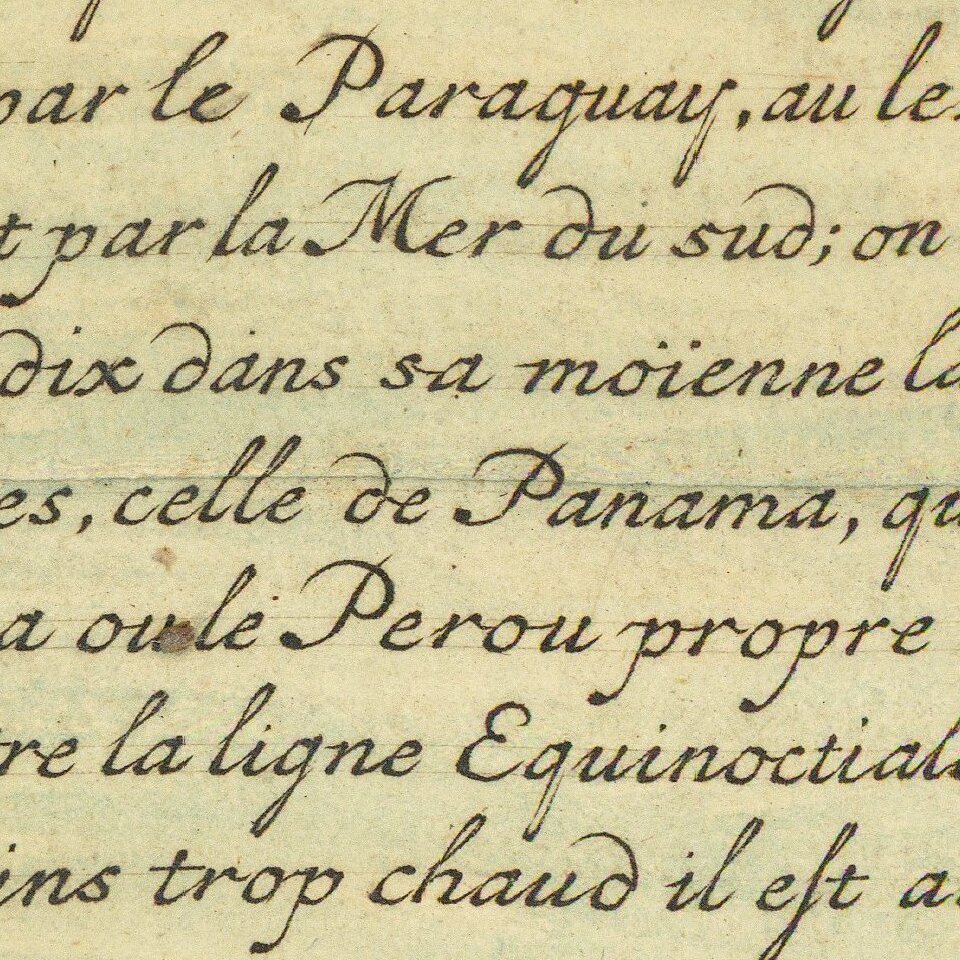 par le Paraguay, au le
t par la Mer du sud; on
dix dans sa moïenne la
es, celle de Panama, qu
a ou le Perou propre
re la ligne Equinoctial
ins trop chaud il est a